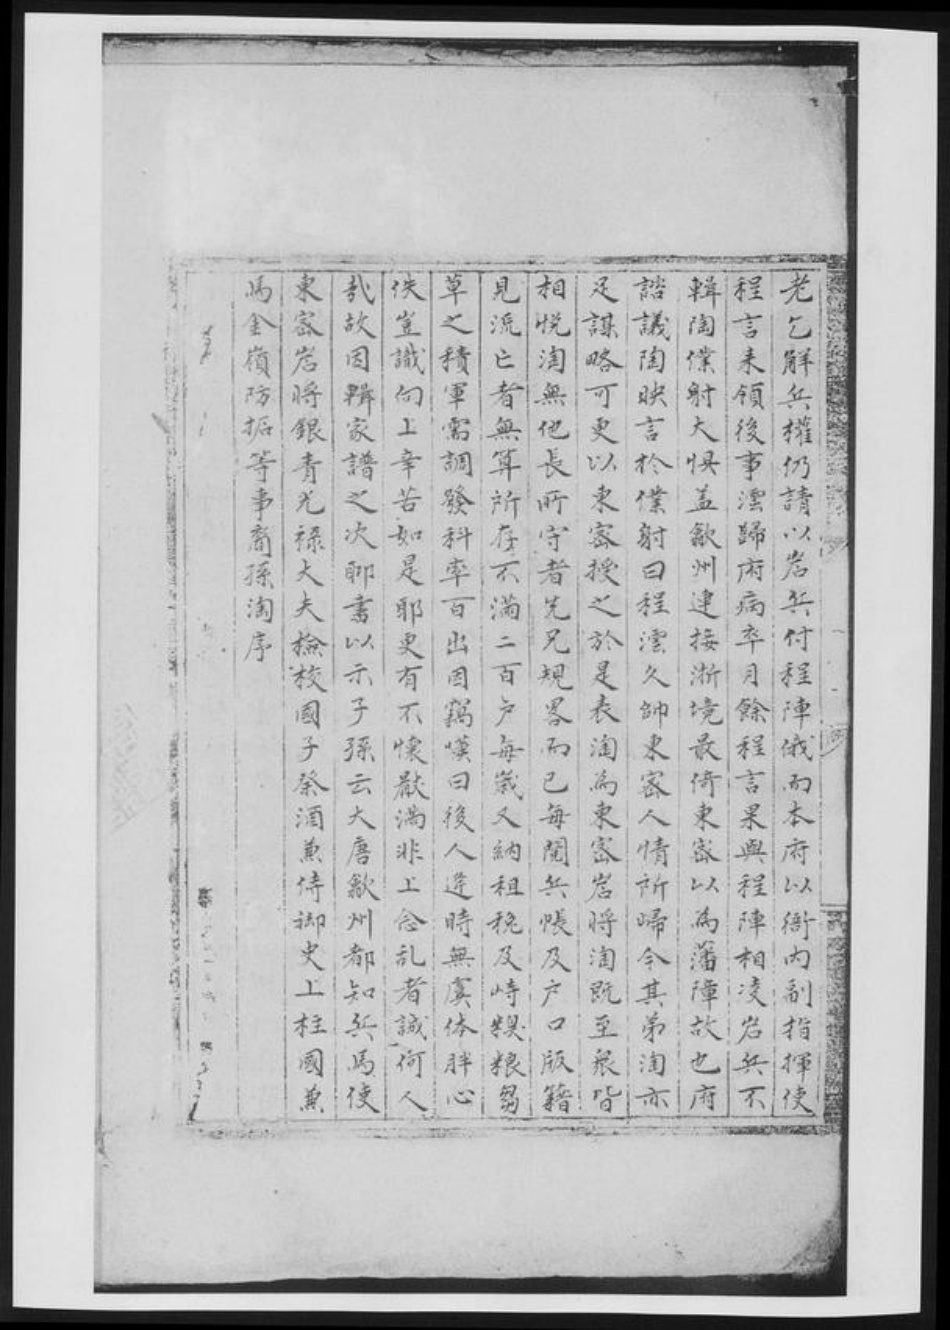 老乞解兵權仍請以岩兵付程陣俄而本府以衙内副指揮使
程言来領後事澐歸府病卒月餘程言果與程陣相凌岩兵不
輯陶僕射大惧盖歙州連接浙境最倚東密以為藩障故也府
諮議陶映言於僕射曰程澐久帥東密人情所歸今其弟淘亦
足謀略可更以東密授之於是表淘為東密岩将淘既至衆皆
相悦淘無他長所守者先兄規畧而已每閲兵帳及户口版籍
見流亡者無算所存不滿二百户每歲又納租税及峙糗粮芻
草之積軍需調發科率百出因竊嘆曰後人逄時無虞体胖心
佚豈識向上辛苦如是耶更有不懷厭滿非上念乱者誠何人
哉故因輯家譜之次聊書以示子孫云大唐歙州都知兵馬使
東密岩将銀青光禄大夫檢校國子祭酒兼侍御史上柱國兼
馬金嶺防拒等事裔孫淘序